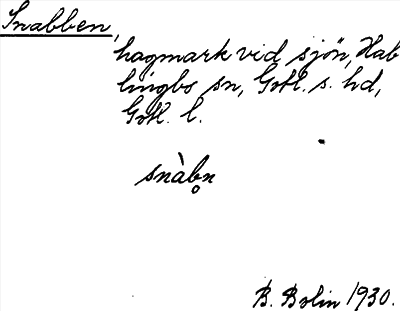 Snabben,
hagmark vid sjön, Hab
lingbo sn, Gotl. s. hd,
Gotl. l.
snàbn̥
B. Bolin 1930.